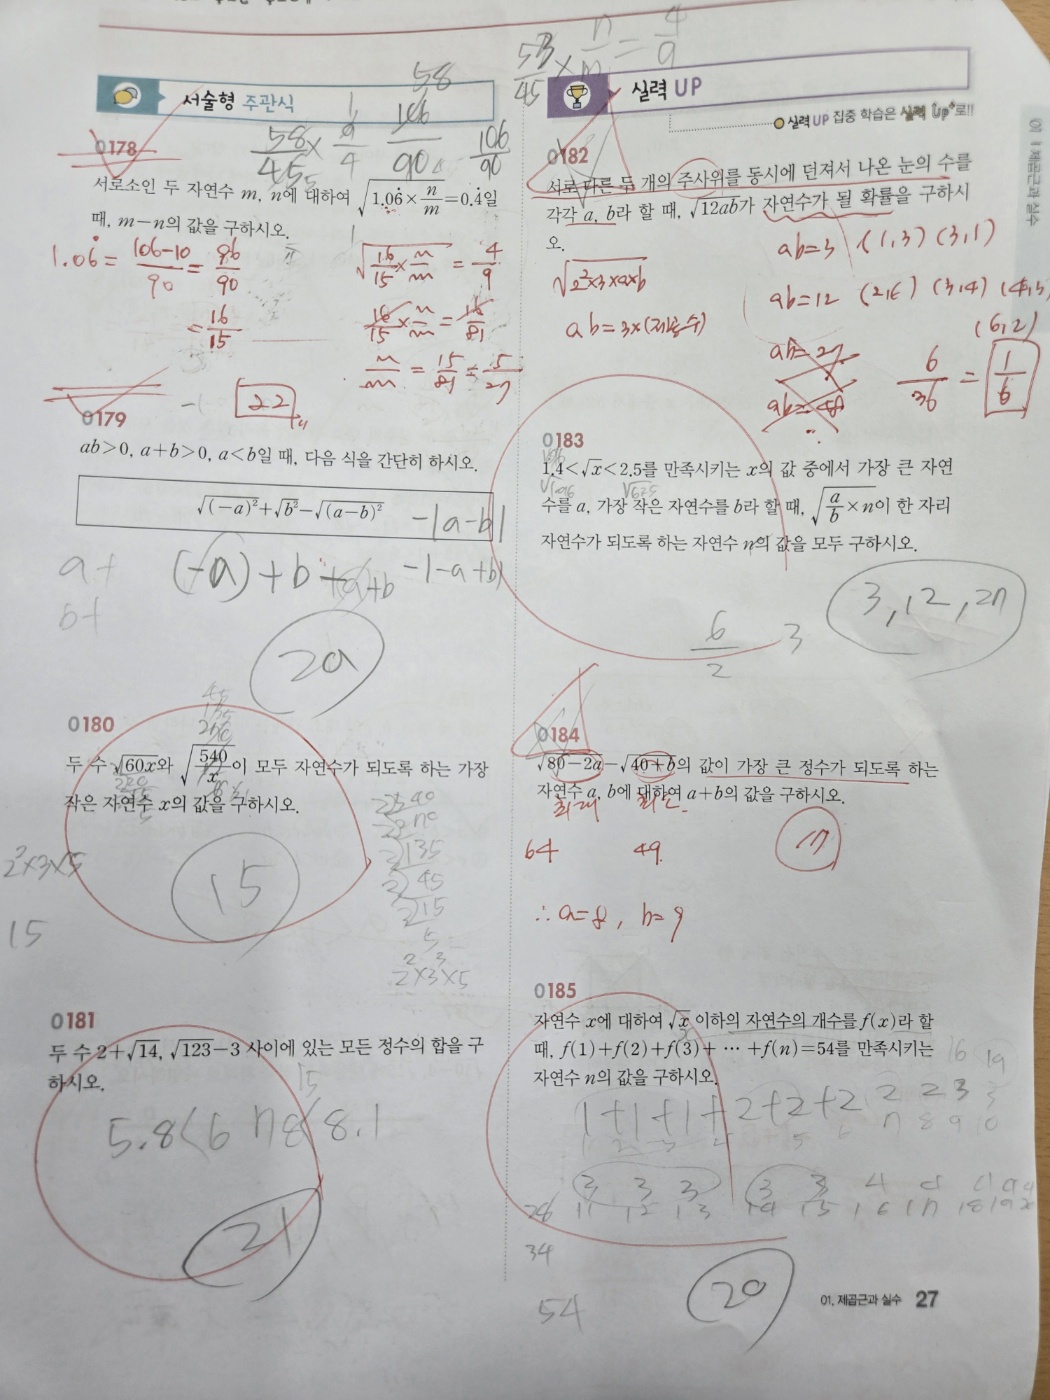 서술형 주관식
58/45 × 9/4
58
106/90
106/90
0178
서로소인 두 자연수 m, n에 대하여 √(1.06̇ × n/m) = 0.4̇일
때, m−n의 값을 구하시오.
1.06̇ = (106−10)/90 = 96/90
= 16/15
√(16/15 × n/m) = 4/9
16/15 × n/m = 16/81
n/m = 15/81 = 5/27
22
0179
ab>0, a+b>0, a<b일 때, 다음 식을 간단히 하시오.
√(−a)² + √b² − √(a−b)²
−|a−b|
a+
(−a)+b
−|−a+b|
b+
2a
0180
두 수 √60x와 √(540/x)이 모두 자연수가 되도록 하는 가장
작은 자연수 x의 값을 구하시오.
2²×3×5
15
15
2²×3³×5
0181
두 수 2+√14, √123−3 사이에 있는 모든 정수의 합을 구
하시오.
15
5.8<6 7 8<8.1
21
53/45 × n/m = 4/9
실력 UP
실력 UP 집중 학습은 실력 Up⁺로!!
0182
서로 다른 두 개의 주사위를 동시에 던져서 나온 눈의 수를
각각 a, b라 할 때, √12ab가 자연수가 될 확률을 구하시
오.
√(2²×3×a×b)
ab=3×(제곱수)
ab=3 (1,3) (3,1)
ab=12 (2,6) (3,4) (4,3)
(6,2)
ab=27
ab=48
6/36 = 1/6
0183
1.4<√x<2.5를 만족시키는 x의 값 중에서 가장 큰 자연
수를 a, 가장 작은 자연수를 b라 할 때, √(a/b × n)이 한 자리
자연수가 되도록 하는 자연수 n의 값을 모두 구하시오.
6/2 3
3, 12, 27
0184
√80−2a − √40+b의 값이 가장 큰 정수가 되도록 하는
자연수 a, b에 대하여 a+b의 값을 구하시오.
최대 최소
64 49
17
∴ a=8, b=9
0185
자연수 x에 대하여 √x 이하의 자연수의 개수를 f(x)라 할
때, f(1)+f(2)+f(3)+ ⋯ +f(n)=54를 만족시키는
자연수 n의 값을 구하시오.
16 19
1+1+1+2+2+2 2 2 3 3
7 8 9 10
3 3 3 3 3 4
11 12 13 14 15 16 17 18 19
34
54
20
01. 제곱근과 실수 27
01 제곱근과 실수